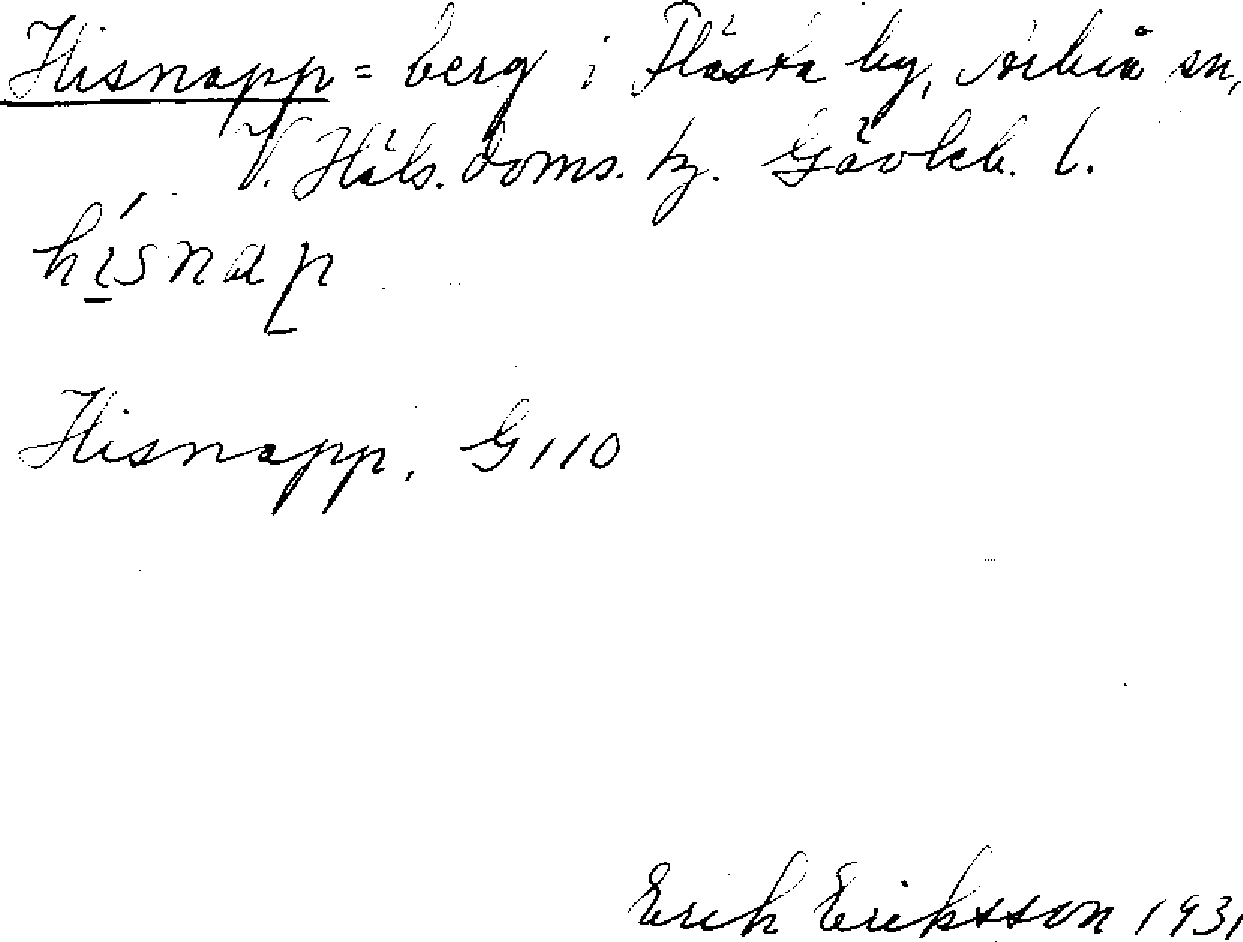 Hisnapp = berg i Flästa by, Arbrå sn,
V. Häls. doms. tg. Gävleb. l.
hísnap
Hisnapp, G110
Erik Eriksson 1931